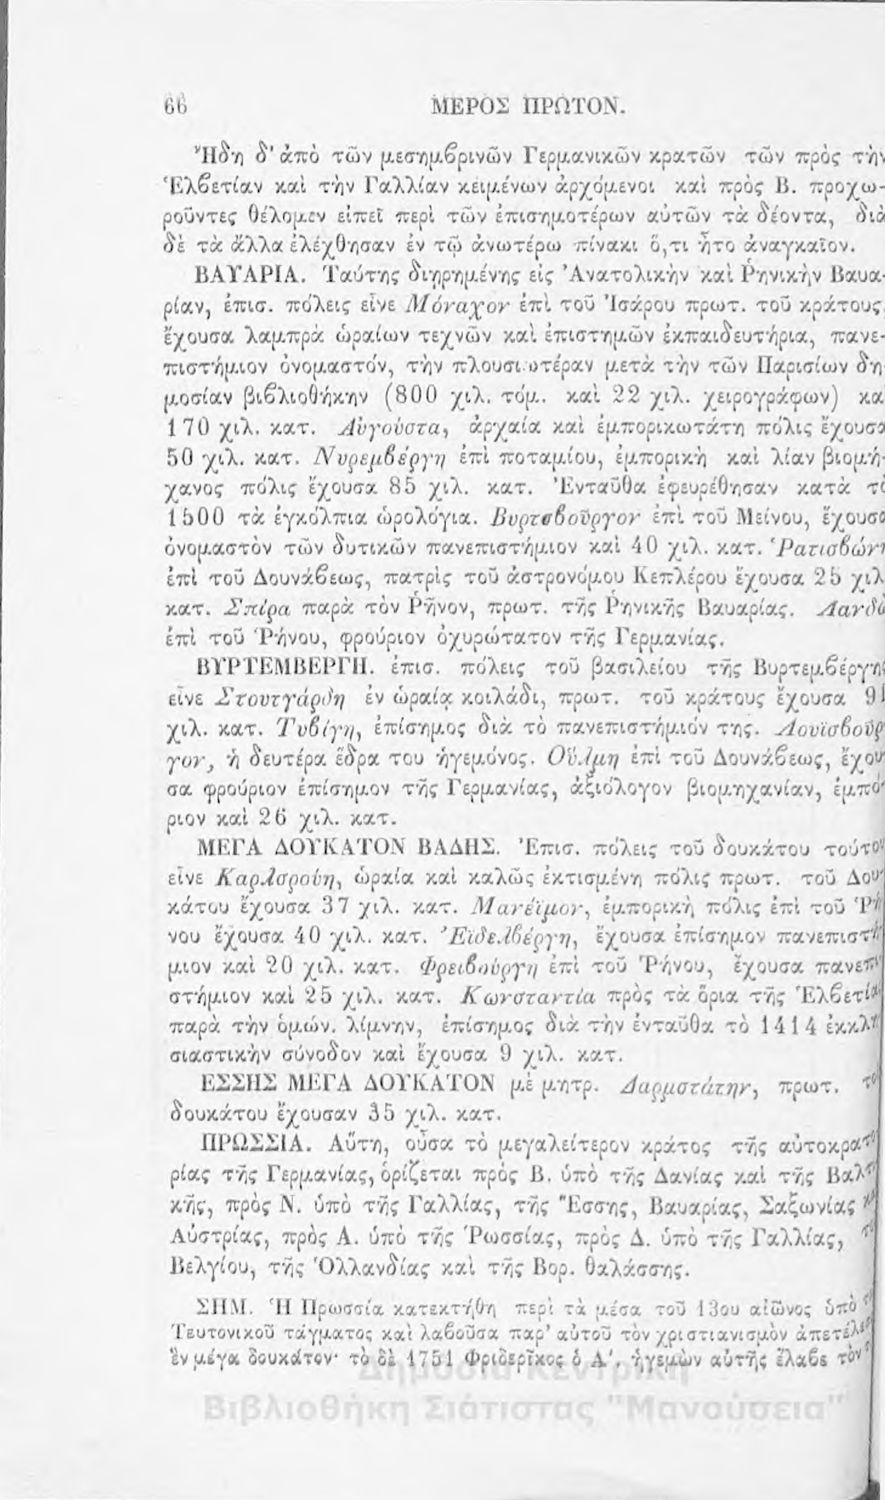 66 ΜΕΡΟΣ ΠΡΩΤΟΝ.
Ἤδη δ' ἀπὸ τῶν μεσημβρινῶν Γερμανικῶν κρατῶν τῶν πρὸς τὴν
Ἑλβετίαν καὶ τὴν Γαλλίαν κειμένων ἀρχόμενοι καὶ πρὸς Β. προχω-
ροῦντες θέλομεν εἰπεῖ περὶ τῶν ἐπισημοτέρων αὐτῶν τὰ δέοντα, διὰ
δὲ τὰ ἄλλα ἐλέχθησαν ἐν τῷ ἀνωτέρω πίνακι ὅ,τι ἦτο ἀναγκαῖον.
ΒΑΥΑΡΙΑ. Ταύτης διῃρημένης εἰς Ἀνατολικὴν καὶ Ῥηνικὴν Βαυα-
ρίαν, ἐπισ. πόλεις εἶνε Μόναχον ἐπὶ τοῦ Ἰσάρου πρωτ. τοῦ κράτους,
ἔχουσα λαμπρὰ ὡραίων τεχνῶν καὶ ἐπιστημῶν ἐκπαιδευτήρια, πανε-
πιστήμιον ὀνομαστόν, τὴν πλουσιωτέραν μετὰ τὴν τῶν Παρισίων δη-
μοσίαν βιβλιοθήκην (800 χιλ. τόμ. καὶ 22 χιλ. χειρογράφων) κα
170 χιλ. κατ. Αὐγούστα, ἀρχαία καὶ ἐμπορικωτάτη πόλις ἔχουσα
50 χιλ. κατ. Νυρεμβέργη ἐπὶ ποταμίου, ἐμπορικὴ καὶ λίαν βιομή-
χανος πόλις ἔχουσα 85 χιλ. κατ. Ἐνταῦθα ἐφευρέθησαν κατὰ τὸ
1500 τὰ ἐγκόλπια ὡρολόγια. Βυρτσβοῦργον ἐπὶ τοῦ Μείνου, ἔχουσα
ὀνομαστὸν τῶν δυτικῶν πανεπιστήμιον καὶ 40 χιλ. κατ. Ῥατισβώνη
ἐπὶ τοῦ Δουνάβεως, πατρὶς τοῦ ἀστρονόμου Κεπλέρου ἔχουσα 25 χιλ
κατ. Σπίρα παρὰ τὸν Ῥῆνον, πρωτ. τῆς Ῥηνικῆς Βαυαρίας. Λανδὰ
ἐπὶ τοῦ Ῥήνου, φρούριον ὀχυρώτατον τῆς Γερμανίας.
ΒΥΡΤΕΜΒΕΡΓΗ. ἐπισ. πόλεις τοῦ βασιλείου τῆς Βυρτεμβέργης
εἶνε Στουτγάρδη ἐν ὡραίᾳ κοιλάδι, πρωτ. τοῦ κράτους ἔχουσα 91
χιλ. κατ. Τυβίγη, ἐπίσημος διὰ τὸ πανεπιστήμιόν της. Λουϊσβοῦρ
γον, ἡ δευτέρα ἕδρα του ἡγεμόνος. Οὔλμη ἐπὶ τοῦ Δουνάβεως, ἔχου
σα φρούριον ἐπίσημον τῆς Γερμανίας, ἀξιόλογον βιομηχανίαν, ἐμπό-
ριον καὶ 26 χιλ. κατ.
ΜΕΓΑ ΔΟΥΚΑΤΟΝ ΒΑΔΗΣ. Ἐπισ. πόλεις τοῦ δουκάτου τούτου
εἶνε Καρλσρούη, ὡραία καὶ καλῶς ἐκτισμένη πόλις πρωτ. τοῦ Δου-
κάτου ἔχουσα 37 χιλ. κατ. Μανέϊμον, ἐμπορικὴ πόλις ἐπὶ τοῦ Ῥή
νου ἔχουσα 40 χιλ. κατ. Ἐϊδελβέργη, ἔχουσα ἐπίσημον πανεπιστή-
μιον καὶ 20 χιλ. κατ. Φρειβούργη ἐπὶ τοῦ Ῥήνου, ἔχουσα πανεπι
στήμιον καὶ 25 χιλ. κατ. Κωνσταντία πρὸς τὰ ὅρια τῆς Ἑλβετίας
παρὰ τὴν ὁμών. λίμνην, ἐπίσημος διὰ τὴν ἐνταῦθα τὸ 1414 ἐκκλη
σιαστικὴν σύνοδον καὶ ἔχουσα 9 χιλ. κατ.
ΕΣΣΗΣ ΜΕΓΑ ΔΟΥΚΑΤΟΝ μὲ μητρ. Δαρμστάτην, πρωτ. τοῦ
δουκάτου ἔχουσαν 35 χιλ. κατ.
ΠΡΩΣΣΙΑ. Αὕτη, οὖσα τὸ μεγαλείτερον κράτος τῆς αὐτοκρατο
ρίας τῆς Γερμανίας, ὁρίζεται πρὸς Β. ὑπὸ τῆς Δανίας καὶ τῆς Βαλτι
κῆς, πρὸς Ν. ὑπὸ τῆς Γαλλίας, τῆς Ἔσσης, Βαυαρίας, Σαξωνίας κ
Αὐστρίας, πρὸς Α. ὑπὸ τῆς Ῥωσσίας, πρὸς Δ. ὑπὸ τῆς Γαλλίας, τ
Βελγίου, τῆς Ὁλλανδίας καὶ τῆς Βορ. θαλάσσης.
ΣΗΜ. Ἡ Πρωσσία κατεκτήθη περὶ τὰ μέσα τοῦ 13ου αἰῶνος ὑπὸ τ
Τευτονικοῦ τάγματος καὶ λαβοῦσα παρ' αὐτοῦ τὸν χριστιανισμὸν ἀπετέλει
ἓν μέγα δουκάτον· τὸ δὲ 1751 Φριδερῖκος ὁ Α΄. ἡγεμὼν αὐτῆς ἔλαβε τὸν
Δημόσια Κεντρική
Βιβλιοθήκη Σιάτιστας "Μανούσεια"